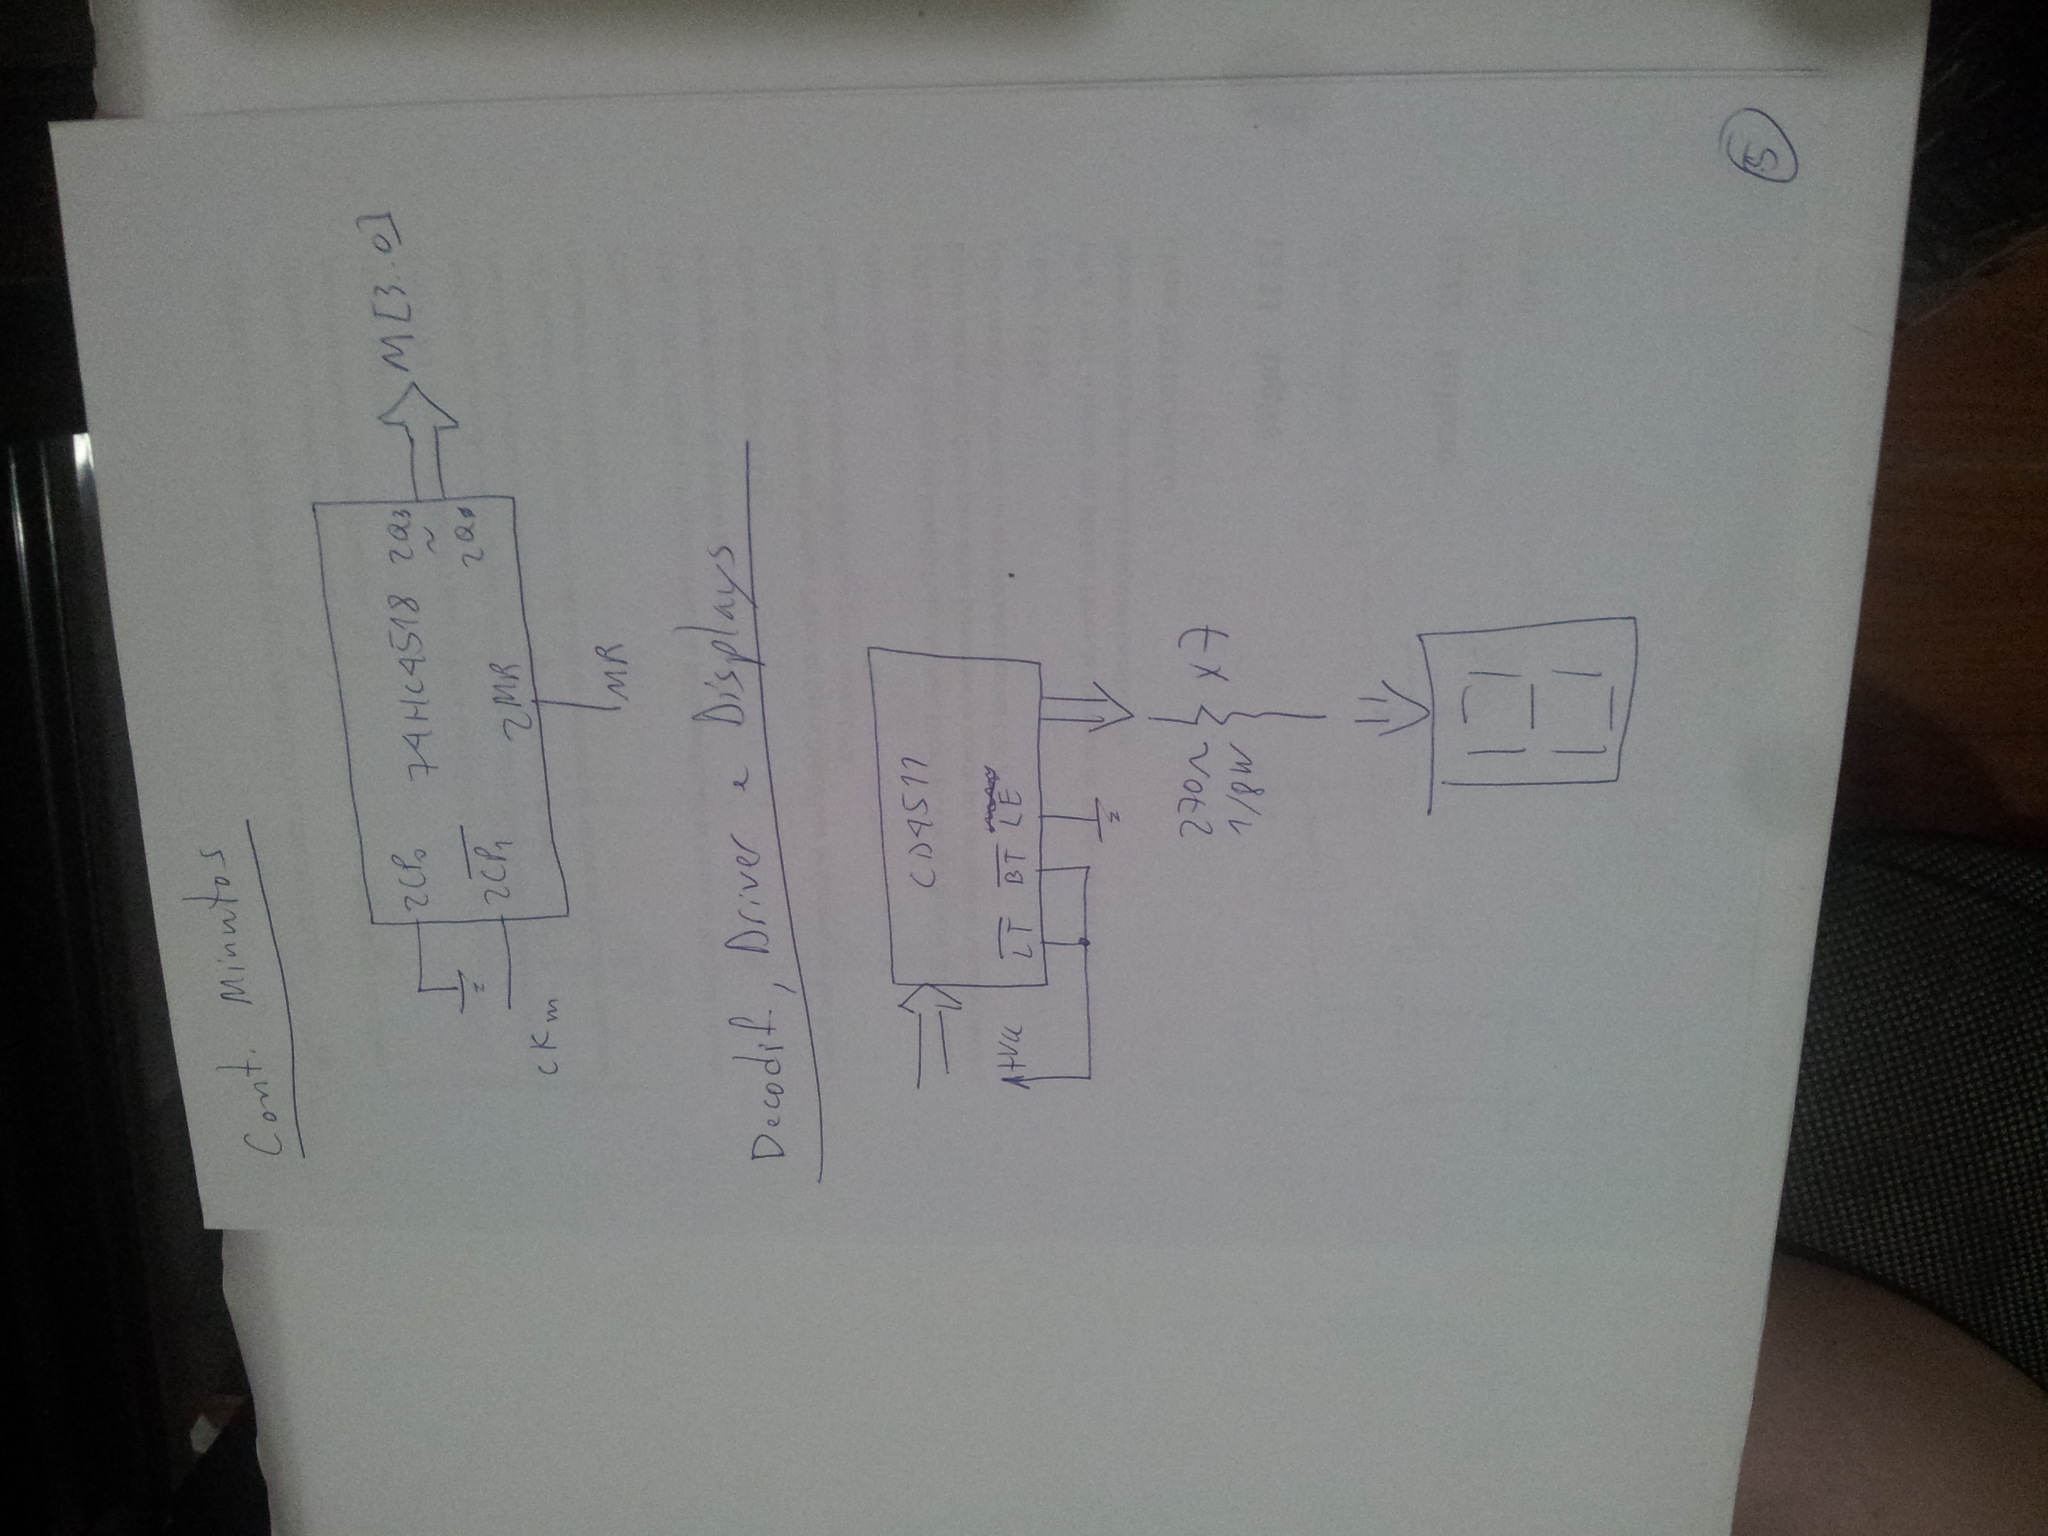 Cont. Minutos
2CP0 74HC4518 2Q3
~
2CP1 2Q0
M[3..0]
CKm
2MR
MR
Decodif., Driver e Displays
CD4511
+Vcc
LT BT LE
270Ω x7
1/8W
5